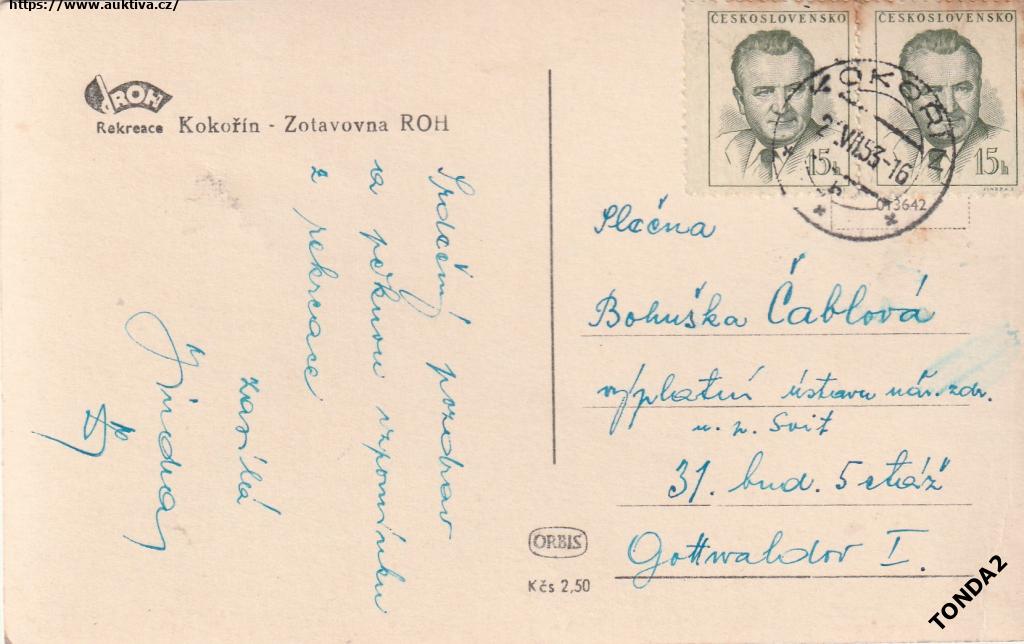 https://www.auktiva.cz/
ROH
Rekreace Kokořín - Zotavovna ROH
Srdečný pozdrav
a pěknou vzpomínku
z rekreace
zasílá
Jindra
ČESKOSLOVENSKO
15h
ČESKOSLOVENSKO
15h
KOKOŘÍN
VII.53-16
013642
Slečna
Bohuška Čablová
výplatní ústavu nár. zdr.
n. p. Svit
31. bud. 5 etáž
Gottwaldov I.
ORBIS
Kčs 2,50
TONDA2